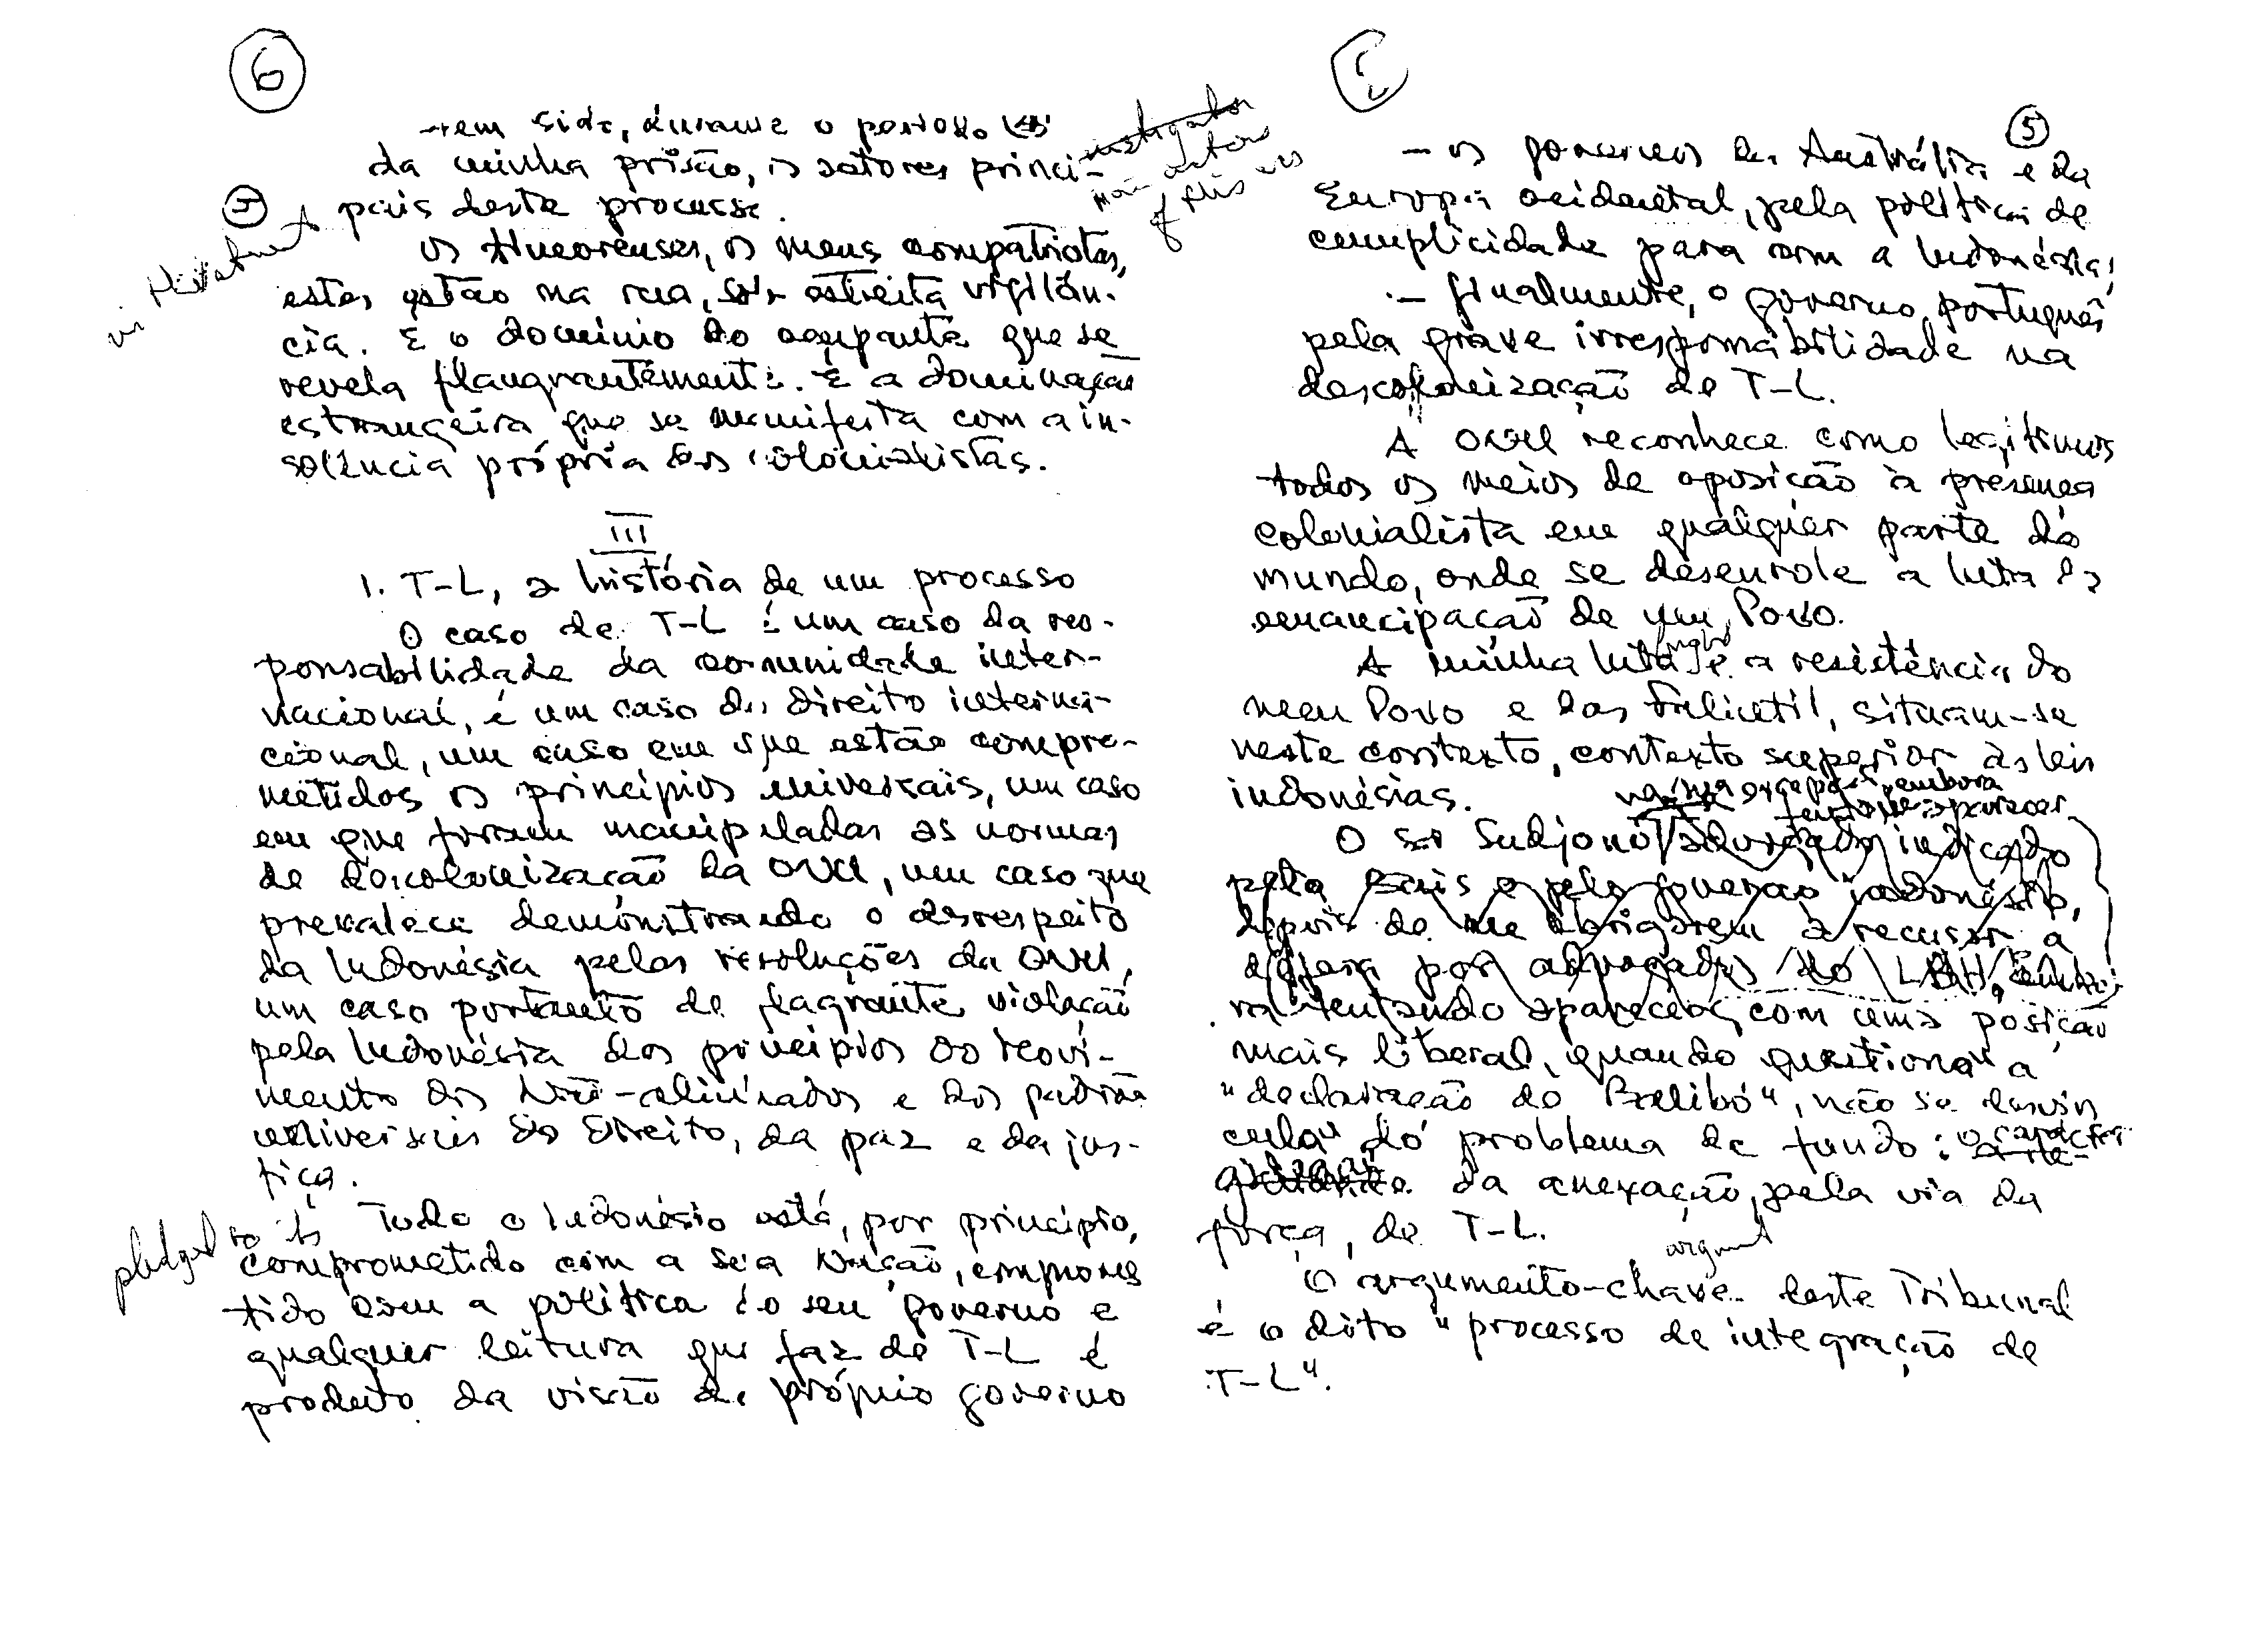 6
têm sido, durante o período
da minha prisão, os actores princi-
pais deste processo.
Os timorenses, os meus compatriotas,
estes estão na rua, sob estreita vigilân-
cia. É o domínio do ocupante que se
revela flangrantemente. É a dominação
estrangeira que se manifesta com a in-
solência própria dos colonialistas.
III
1. T-L, a história de um processo
O caso de T-L é um caso da res-
ponsabilidade da comunidade inter-
nacional, é um caso do direito interna-
cional, um caso em que estão compro-
metidos os princípios universais, um caso
em que foram manipuladas as normas
de descolonização da ONU, um caso que
prevalece demonstrando o desrespeito
da Indonésia pelas resoluções da ONU,
um caso portanto de flagrante violação
pela Indonésia dos princípios do Movi-
mento dos Não-alinhados e dos padrões
universais do Direito, da paz e da jus-
tiça.
pledged to its
Todo o Indonésio está, por princípio,
comprometido com a sua Nação, comprome
tido com a política do seu governo e
qualquer leitura que faz de T-L é
produto da visão do próprio governo
instigator
main actors
of this
5
- os governos da Austrália e da
Europa ocidental, pela política de
cumplicidade para com a Indonésia;
- finalmente, o governo português
pela grave irresponsabilidade na
descolonização de T-L.
A ONU reconhece como legítimos
todos os meios de oposição à presença
colonialista em qualquer parte do
mundo, onde se desenrole a luta de
emancipação de um Povo.
A minha luta, e a resistência do
meu Povo e das Falintil, situam-se
neste contexto, contexto superior às leis
indonésias.
embora
tentasse aparecer
O sr Sudjono, advogado indicado
pela Bais e pelo governo indonésio,
depois de me obrigarem a recusar a
defesa por advogados do LBH, embo
ra tentando aparecer com uma posição
mais liberal, quando questiona a
"declaração do Balibó", não se desvin
cula do problema de fundo: o carácter
da anexação, pela via da
força, de T-L.
argument
O argumento-chave deste Tribunal
é o dito "processo de integração de
T-L".